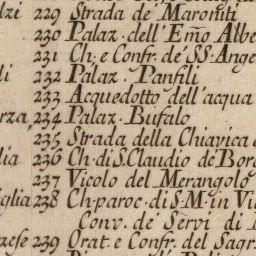 229 Strada de Maroniti
230 Palaz. dell'Emo Albe
231 Ch. e Confr. de SS. Ange
232 Palaz. Panfili
233 Acquedotto dell'acqua
234 Palaz. Bufalo
235 Strada della Chiavica
236 Ch. di S. Claudio de Bor
237 Vicolo del Merangolo
238 Ch. paroc. di S. M. in Vi
Conv. de Servi di
239 Orat. e Confr. del Sagr